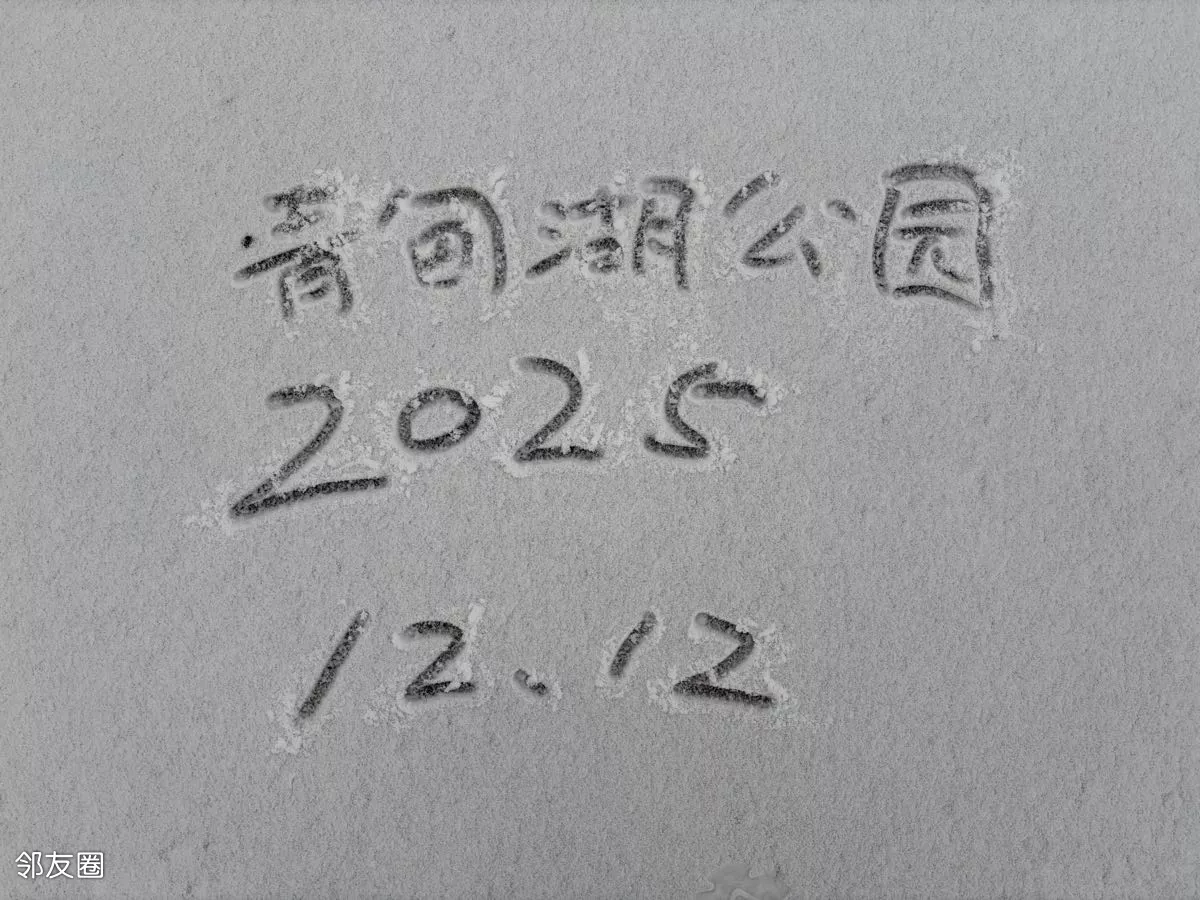 青甸湖公园
2025
12.12
邻友圈